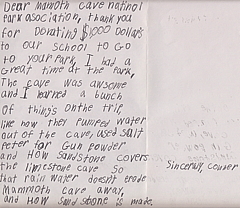 Dear Mammoth cave nationol
Park asociation, thank you
for Donating $1000 dollars
to our School to Go
to your park, I had a
Great time at the park,
The cave was awsome
and I learned a bunch
of things on the trip
like how they pumped water
out of the cave, used salt
Peter for Gun powder
and How sandstone covers
the limestone cave so
that rain water doesn't erode
Mammoth cave away,
and How sandstone is made.
Sincerely,